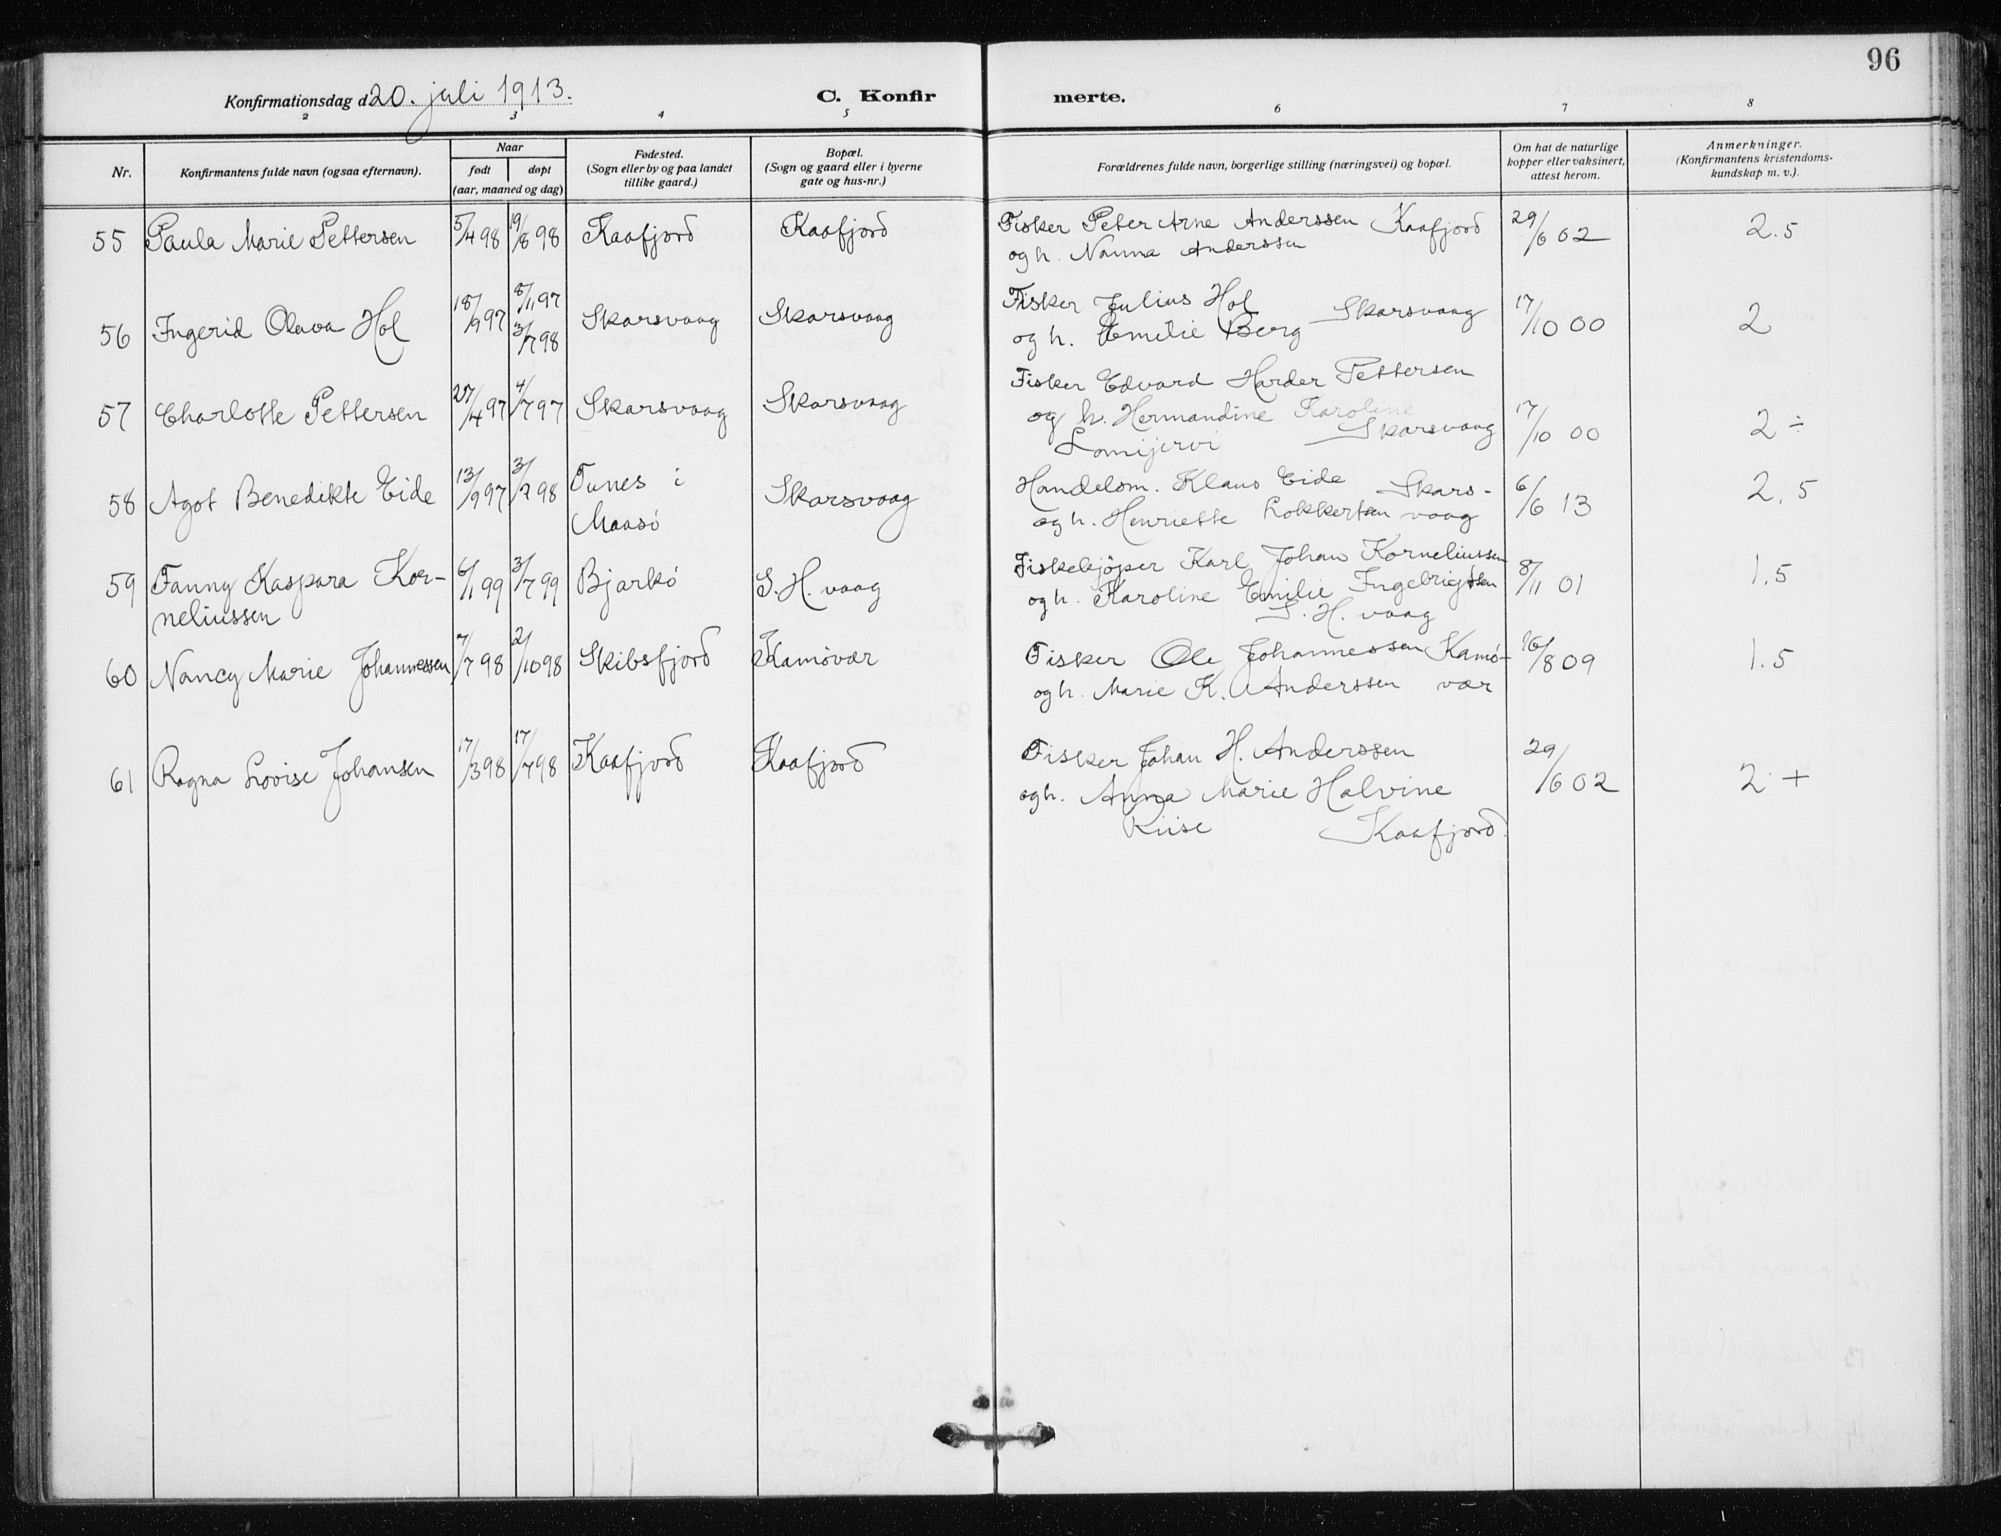 96
Konfirmationsdag d. 20. juli 1913. C. Konfir merte.
2 3 4 5 6 7 8
Nr. Konfirmantens fulde navn (ogsaa efternavn). Naar født døpt (aar, maaned og dag) Fødested. (Sogn eller by og paa landet tillike gaard.) Bopæl. (Sogn og gaard eller i byerne gate og hus-nr.) Forældrenes fulde navn, borgerlige stilling (næringsvei) og bopæl. Om hat de naturlige kopper eller vaksinert, attest herom. Anmerkninger. (Konfirmantens kristendomskundskap m. v.).
55 Paula Marie Pettersen 5/4 98 19/8 98 Kaafjord Kaafjord Fisker Peter Arne Anderssen Kaafjord 29/6 02 2.5
og h. Nanna Anderssen
56 Ingerid Olava Hol 18/9 97 8/11 97 3/7 98 Skarsvaag Skarsvaag Fisker Julius Hol Skarsvaag 17/10 00 2
og h. Emelie Berg
57 Charlotte Pettersen 27/4 97 4/7 97 Skarsvaag Skarsvaag Fisker Edvard Harder Pettersen
og h. Hermandine Karoline 17/10 00 2 ÷
Lomijervi Skarsvaag
58 Agot Benedikte Eide 13/9 97 3/7 98 Tunes i Skarsvaag Handelsm. Klaus Eide Skars- 6/6 13 2.5
Maasö og h. Henriette Lokkertsen vaag
59 Fanny Kaspara Kor- 6/1 99 3/7 99 Bjarkö S. H. vaag Fiskekjöper Karl Johan Korneliussen 8/11 01 1.5
neliussen og h. Karoline Emilie Ingebrigtsen
S. H. vaag
60 Nancy Marie Johannessen 7/7 98 2/10 98 Skibsfjord Kamövær Fisker Ole Johannessen Kamö- 16/8 09 1.5
og h. Marie K. Anderssen vær
61 Ragna Lovise Johansen 17/3 98 17/7 98 Kaafjord Kaafjord Fisker Johan H. Anderssen 29/6 02 2 +
og h. Anna Marie Halvine
Riise Kaafjord.